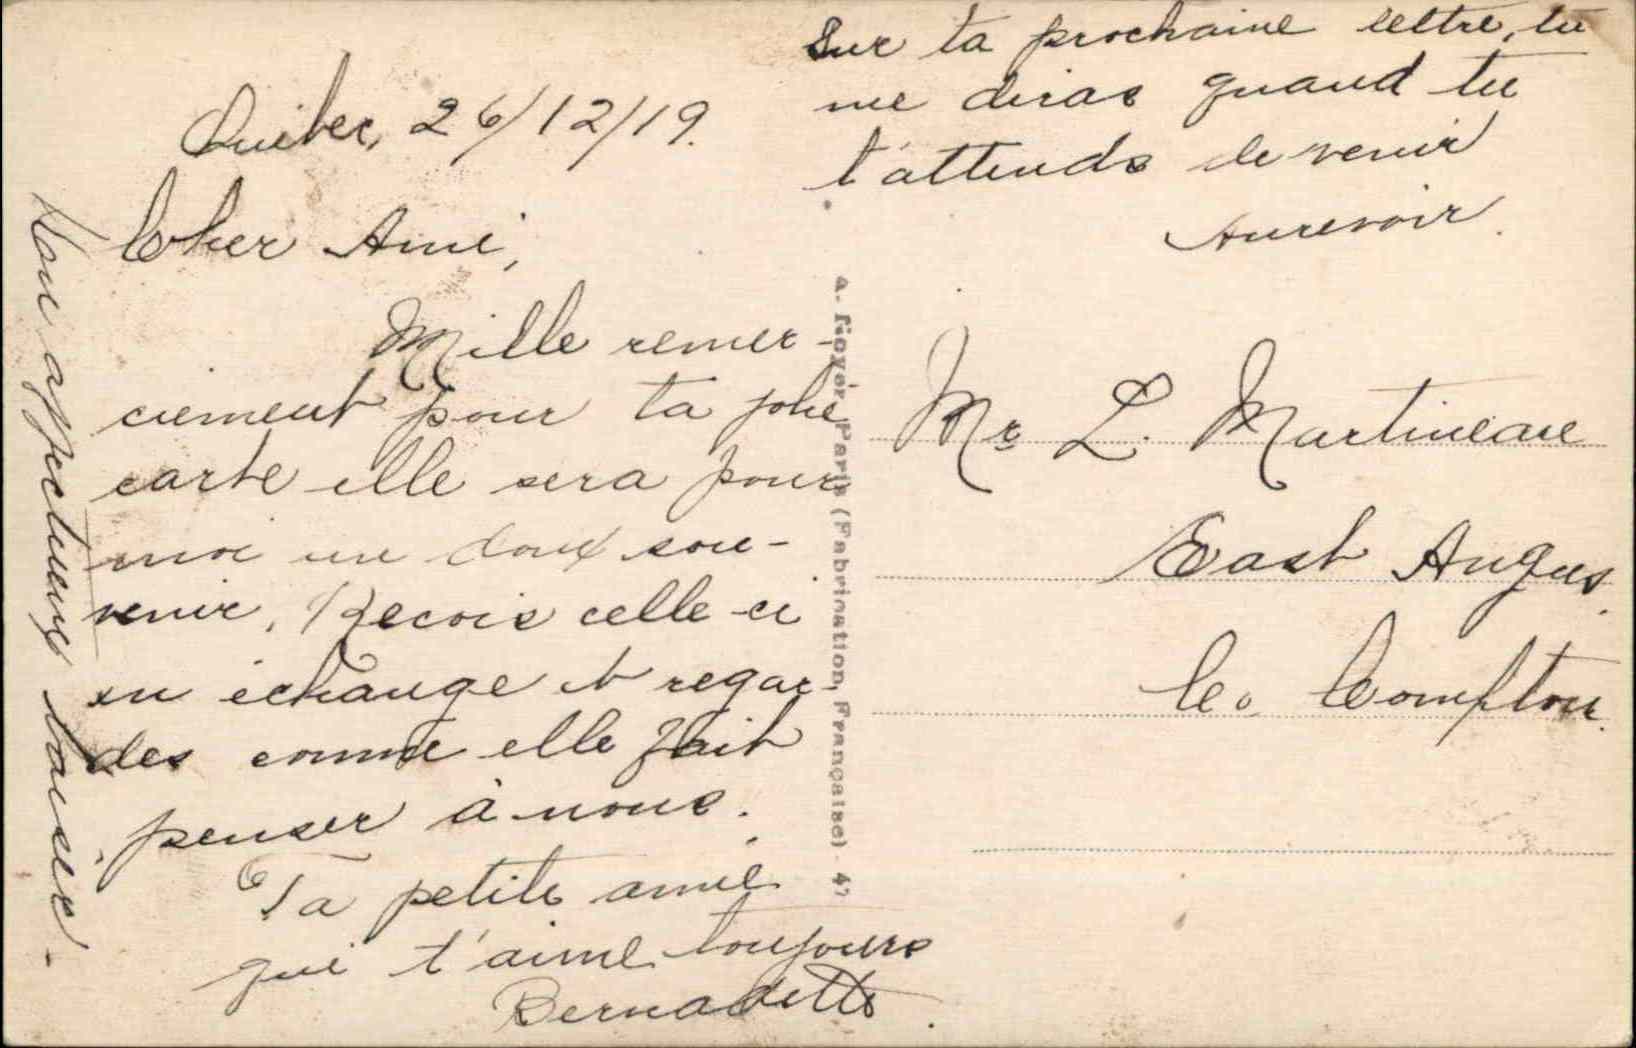 Québec, 26/12/19.
Cher Ami,
Mille remer-
ciement pour ta jolie
carte elle sera pour
moi un doux sou-
venir. Recois celle-ci
en échange et regar-
des comme elle fait
penser à nous.
Ta petite amie
qui t'aime toujours
Bernadette.
affectueux baiser.
Sur ta prochaine lettre, tu
me diras quand tu
t'attends de venir
Aurevoir.
Mr L. Martineau
East Angus.
Co. Compton.
A. Noyer, Paris (Fabrication Française) - 47